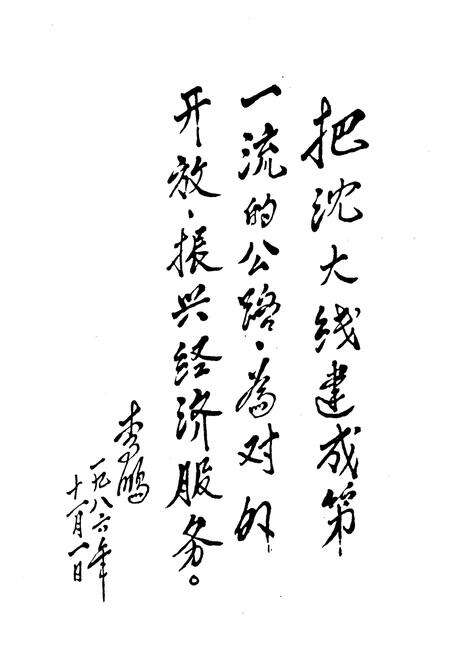 把沈大线建成第
一流的公路、为对外
开放、振兴经济服务。
李鹏
一九八六年
十一月一日